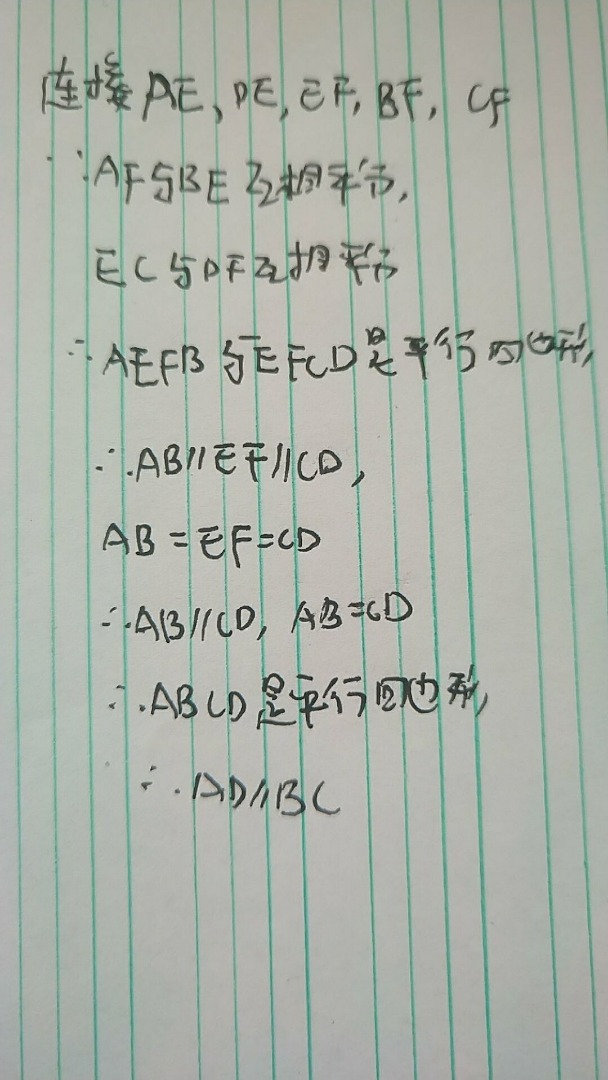 连接AE、DE,EF,BF,CF
∵AF与BE互相平分,
EC与DF互相平分
∴AEFB与EFCD是平行四边形,
∴AB//EF//CD,
AB=EF=CD
∴AB//CD,AB=CD
∴ABCD是平行四边形,
∴AD//BC